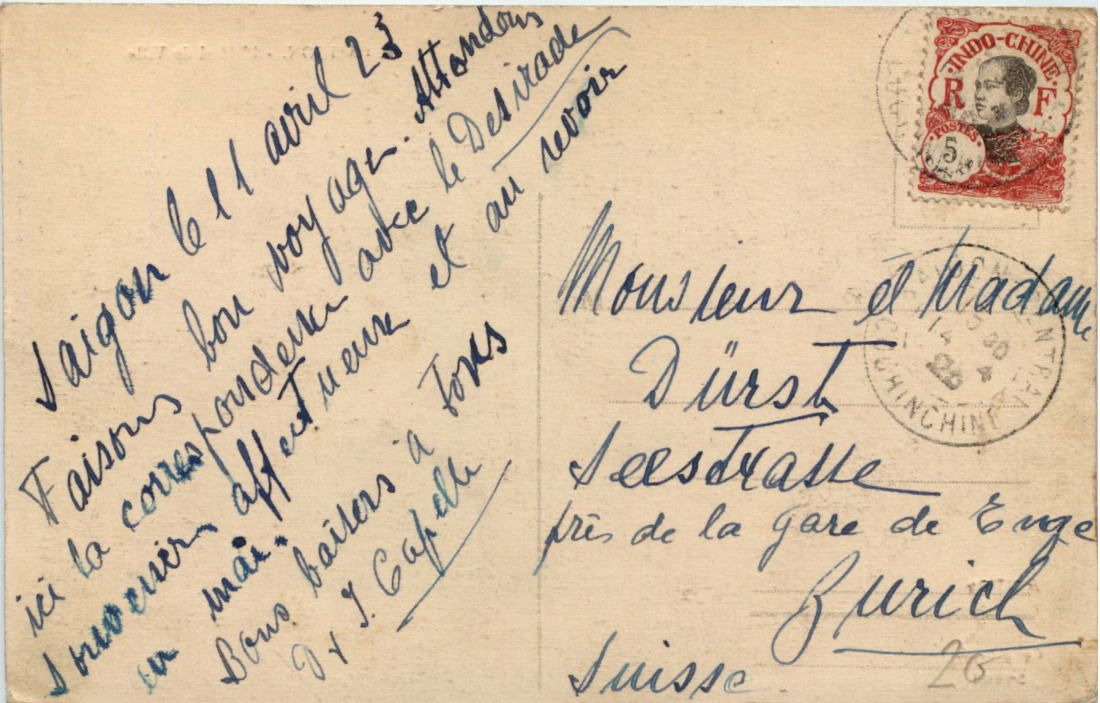 Saigon le 11 avril 23
Faisons bon voyage. Attendons
ici la correspondence avec le Desirade
Souvenirs affectueux et au revoir
en mai.
Bons baisers à tous
D & J. Capelle
INDO-CHINE
R F
POSTES
5
Monsieur et Madame
Dürst
Seestrasse
près de la Gare de Enge
Zurich
Suisse
SAIGON CENTRAL
14 4
COCHINCHINE
26